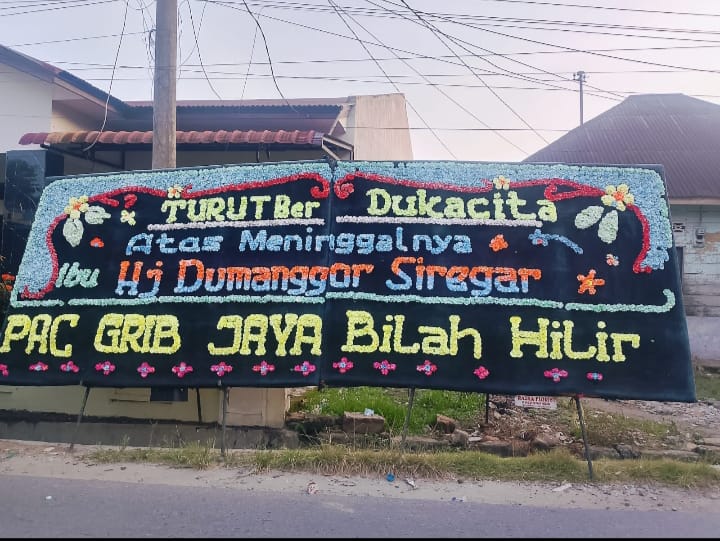 TURUT Ber Dukacita
Atas Meninggalnya
Ibu Hj Dumanggor Siregar
PAC GRIB JAYA Bilah Hilir